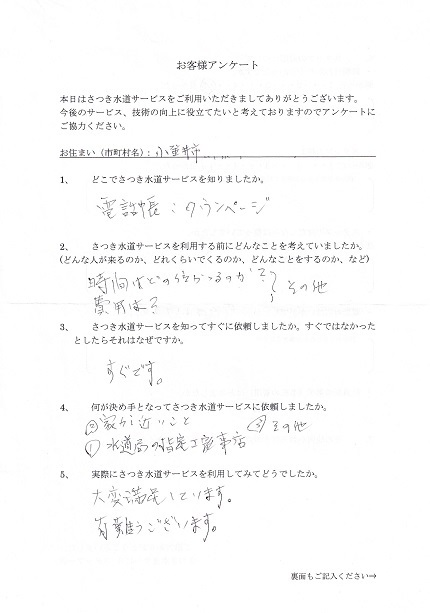 お客様アンケート
本日はさつき水道サービスをご利用いただきましてありがとうございます。
今後のサービス、技術の向上に役立てたいと考えておりますのでアンケートに
ご協力ください。
お住まい（市町村名）：小金井市
1、 どこでさつき水道サービスを知りましたか。
電話帳：タウンページ
2、 さつき水道サービスを利用する前にどんなことを考えていましたか。
（どんな人が来るのか、どれくらいでくるのか、どんなことをするのか、など）
時間はどの位かかるのか？
費用は？
その他
3、 さつき水道サービスを知ってすぐに依頼しましたか。すぐではなかった
としたらそれはなぜですか。
すぐです。
4、 何が決め手となってさつき水道サービスに依頼しましたか。
②家から近いこと ③その他
①水道局の指定工事店
5、 実際にさつき水道サービスを利用してみてどうでしたか。
大変満足しています。
有難うございます。
裏面もご記入ください→